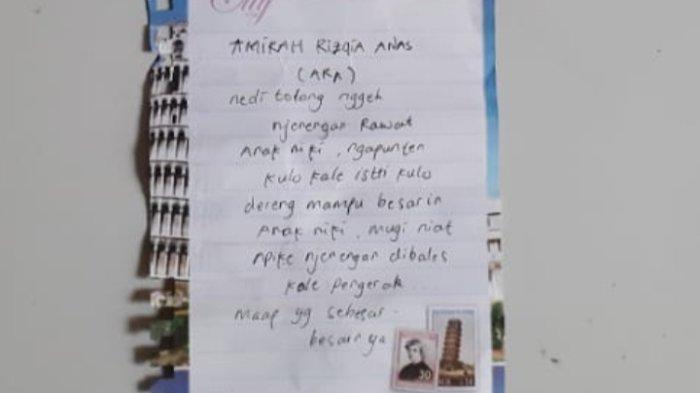 City
AMIRAH RIZQIA ANAS
(ARA)
nedi tolong nggeh
njenengan Rawat
Anak niki, ngapunten
kulo kale istri kulo
dereng mampu besarin
Anak niki, mugi niat
Apike njenengan dibales
kale Pengeran
maap yg sebesar-
besarnya
30